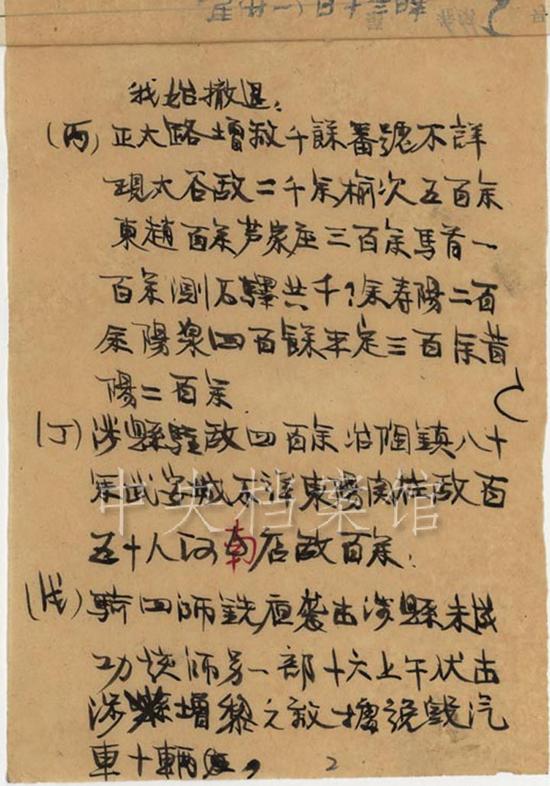 我始撤退.
(丙)正太路增敌千餘番號不詳
現太谷敌二千余榆次五百余
東趙百余芦家庄三百余馬首一
百余測石驛共千余寿陽二百
余陽泉四百餘平定三百余昔
陽二百余
(丁)涉縣駐敌四百余沿固鎮八十
余武安城不詳東陽關駐敌百
五十人河南店敌百余.
(戊)騎四師銑夜袭击涉縣未成
功该師另一部十六上午伏击
涉縣增黎之敌据说毁汽
車十輛
2
中央档案馆